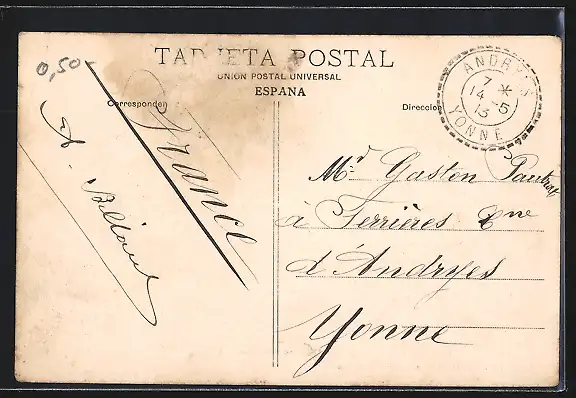 0,50
TARJETA POSTAL
UNION POSTAL UNIVERSAL
ESPAÑA
Corresponden
Direccion
ANDRYES
7 *
14 - 5
13
YONNE
France
A.
Mr. Gaston
à Ferrières Cne
d'Andryes
Yonne